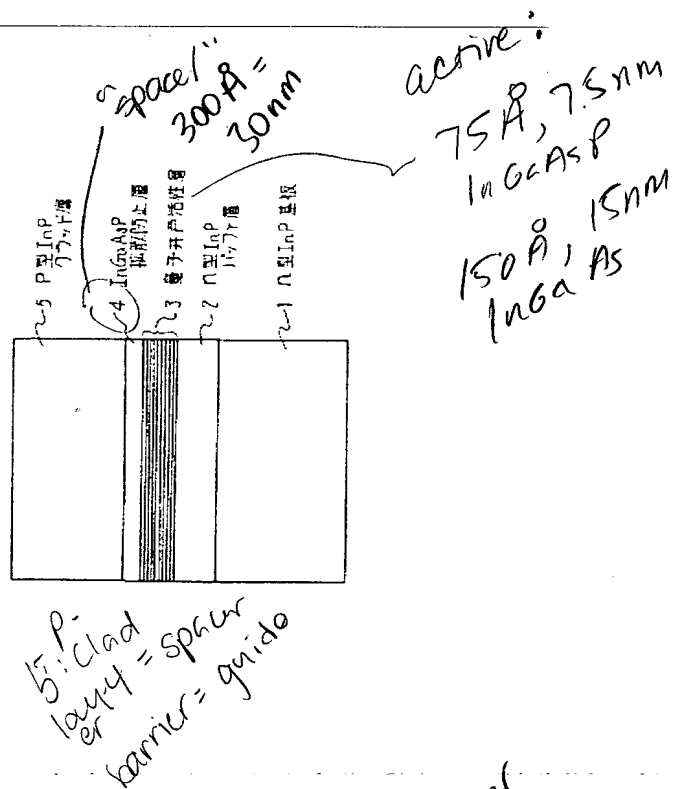 "space1"
300Å =
30nm
active:
75Å, 7.5nm
InGaAsP
150Å, 15nm
InGaAs
5 P型InP
クラッド層
4 InGaAsP
拡散防止層
3 量子井戸活性層
2 n型InP
バッファ層
1 n型InP基板
P-
5: Clad
layer 4 = spacer
barrier = guide